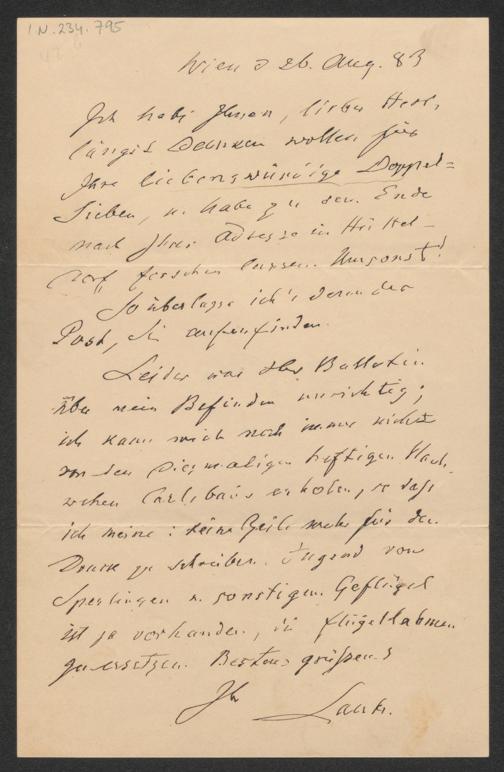 I.N. 234.795
Wien d 26. Aug. 83
Ich habe Ihnen, lieber Herr,
längst danken wollen für
Ihre liebenswürdige Doppel=
Sieben, u. habe zu dem Ende
nach Ihrer Adresse in Hüttel-
dorf forschen lassen. Umsonst!
So überlasse ich's denn der
Post, Sie aufzufinden.
Leider war das Bulletin
über mein Befinden unrichtig;
ich kann mich noch immer nicht
von den diesmaligen heftigen Nach-
wehen Carlsbads erholen, so daß
ich meine: keine Zeile mehr für den
Druck zu schreiben. Jugend von
Sperlingen u. sonstigem Geflügel
ist ja vorhanden, die flügellahmen
zu ersetzen. Bestens grüßend
Ihr